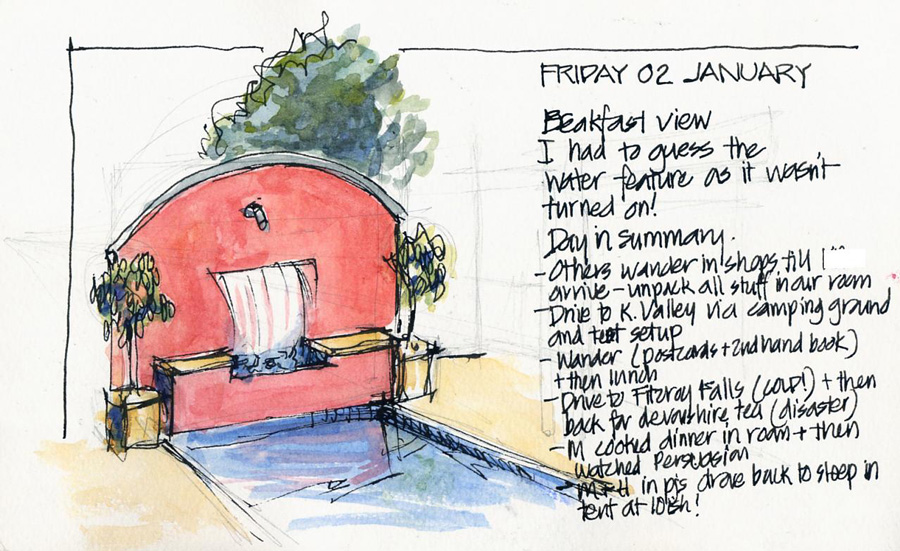 FRIDAY 02 JANUARY
Beakfast view
I had to guess the
water feature as it wasn't
turned on!
Day in summary.
- Others wander in shops till I
arrive - unpack all stuff in our room
- Drive to K. Valley via camping ground
and tent setup
- Wander (postcards + 2nd hand book)
+ then lunch
- Drive to Fitzroy Falls (cold!) + then
back for devonshire tea (disaster)
- M cooked dinner in room + then
watched Persuasion
in pjs drove back to sleep in
tent at 10ish!